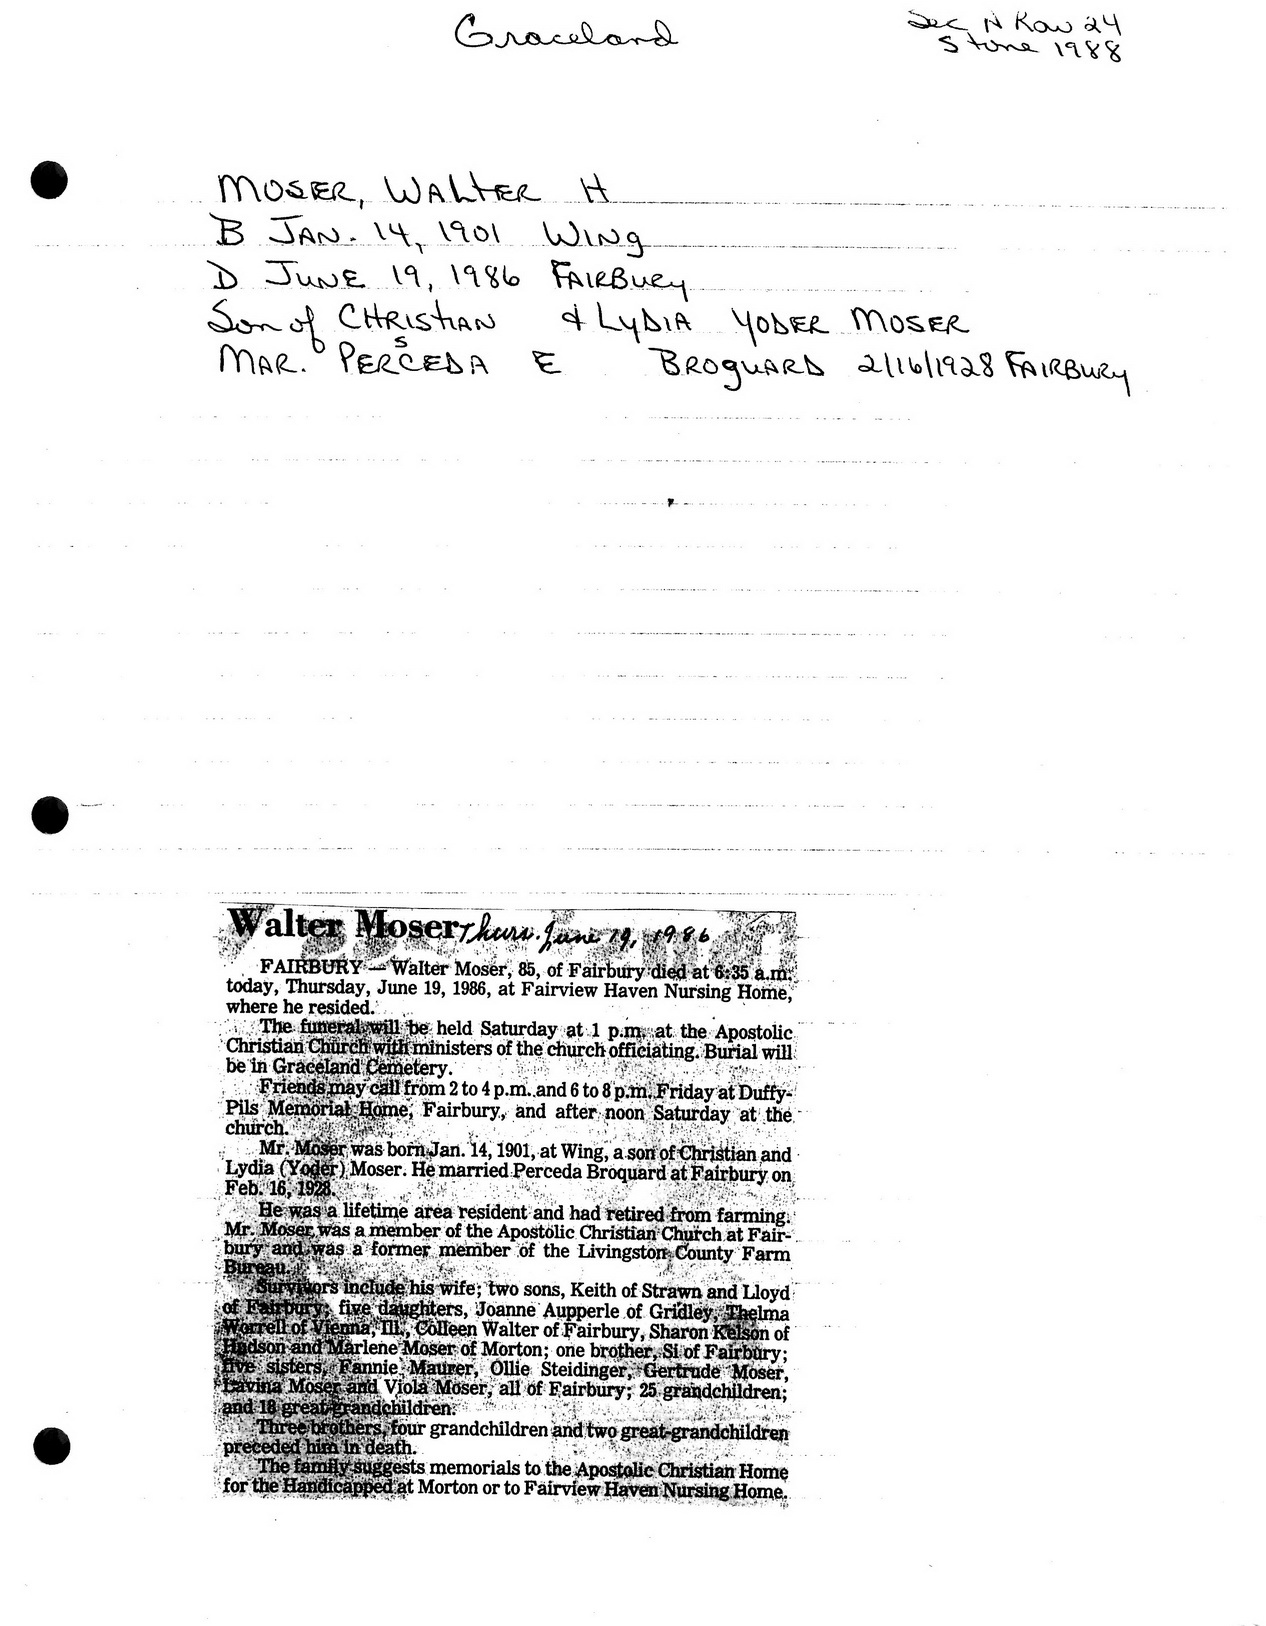 Graceland
Sec N Row 24
Stone 1988
MOSER, WALTER H
B JAN. 14, 1901 WING
D JUNE 19, 1986 FAIRBURY
Son of CHRISTIAN & LYDIA YODER MOSER
S
MAR. PERCEDA E BROQUARD 2/16/1928 FAIRBURY
Walter Moser Thurs. June 19, 1986
FAIRBURY — Walter Moser, 85, of Fairbury died at 6:35 a.m.
today, Thursday, June 19, 1986, at Fairview Haven Nursing Home,
where he resided.
The funeral will be held Saturday at 1 p.m. at the Apostolic
Christian Church with ministers of the church officiating. Burial will
be in Graceland Cemetery.
Friends may call from 2 to 4 p.m. and 6 to 8 p.m. Friday at Duffy-
Pils Memorial Home, Fairbury, and after noon Saturday at the
church.
Mr. Moser was born Jan. 14, 1901, at Wing, a son of Christian and
Lydia (Yoder) Moser. He married Perceda Broquard at Fairbury on
Feb. 16, 1928.
He was a lifetime area resident and had retired from farming.
Mr. Moser was a member of the Apostolic Christian Church at Fair-
bury and was a former member of the Livingston County Farm
Bureau.
Survivors include his wife; two sons, Keith of Strawn and Lloyd
of Fairbury; five daughters, Joanne Aupperle of Gridley, Thelma
Worrell of Vienna, Ill., Colleen Walter of Fairbury, Sharon Kelson of
Hudson and Marlene Moser of Morton; one brother, Si of Fairbury;
five sisters, Fannie Maurer, Ollie Steidinger, Gertrude Moser,
Lavina Moser and Viola Moser, all of Fairbury; 25 grandchildren;
and 18 great-grandchildren.
Three brothers, four grandchildren and two great-grandchildren
preceded him in death.
The family suggests memorials to the Apostolic Christian Home
for the Handicapped at Morton or to Fairview Haven Nursing Home.